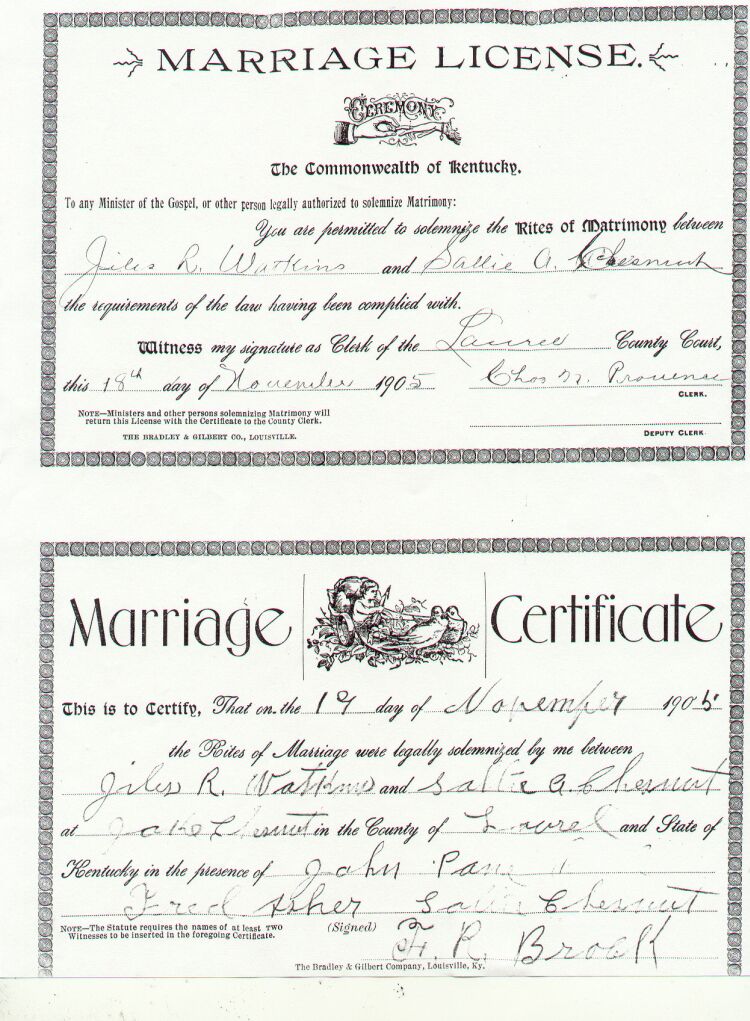 MARRIAGE LICENSE.
CEREMONY
The Commonwealth of Kentucky.
To any Minister of the Gospel, or other person legally authorized to solemnize Matrimony:
You are permitted to solemnize the Rites of Matrimony between
Jiles R. Watkins and Sallie A. Chesnut
the requirements of the law having been complied with.
Witness my signature as Clerk of the Laurel County Court,
this 18th day of November 1905
CLERK.
NOTE—Ministers and other persons solemnizing Matrimony will
return this License with the Certificate to the County Clerk.
DEPUTY CLERK.
THE BRADLEY & GILBERT CO., LOUISVILLE.
Marriage Certificate
This is to Certify, That on the 19 day of November 1905
the Rites of Marriage were legally solemnized by me between
Jiles R. Watkins and Sallie A. Chesnut
at Jake Chesnut in the County of Laurel and State of
Kentucky in the presence of John
Fred Asher Sallie Chesnut
NOTE—The Statute requires the names of at least two
Witnesses to be inserted in the foregoing Certificate.
(Signed) F. R. Brock
The Bradley & Gilbert Company, Louisville, Ky.